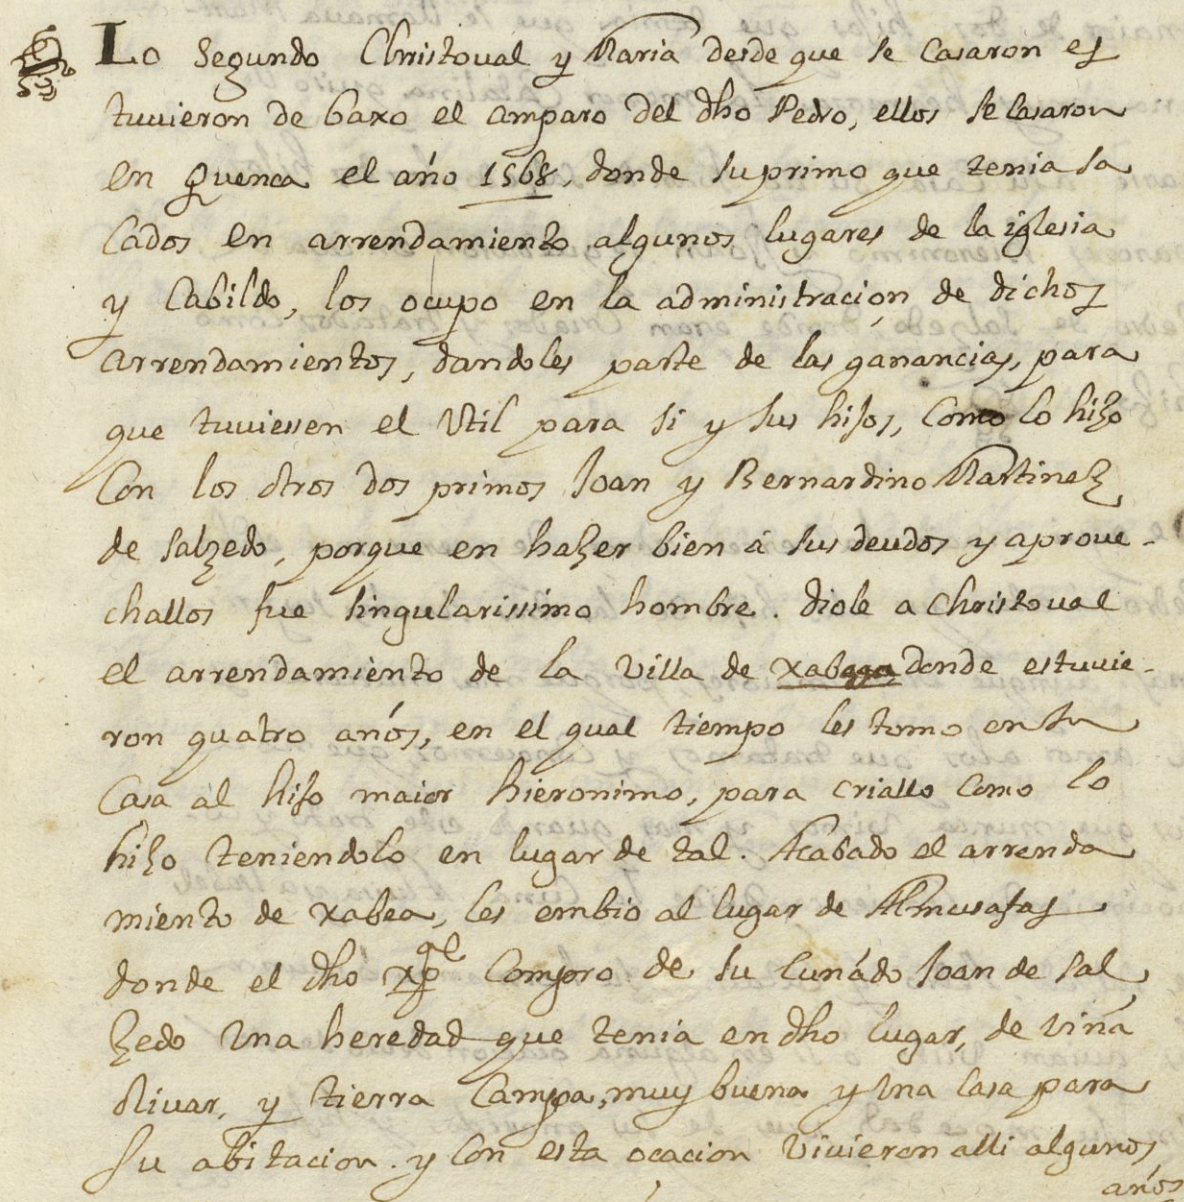 Lo segundo Christoual y Maria desde que se casaron es
tuuieron de baxo el amparo del dho Pedro, ellos se casaron
en Quenca el año 1568, donde su primo que tenia sa
cados en arrendamiento algunos lugares de la iglesia
y Cabildo, los ocupo en la administracion de dichos
arrendamientos, dandoles parte de las ganancias, para
que tuuiessen el Vtil para si y sus hijos, como lo hizo
Con los otros dos primos Joan y Bernardino Martinez
de Salzedo, porque en hazer bien á sus deudos y aproue-
challos fue singularissimo hombre. diole a Christoual
el arrendamiento de la Villa de xabea donde estuuie-
ron quatro años, en el qual tiempo les tomo en su
Casa al hijo maior hieronimo, para criallo como lo
hizo teniendolo en lugar de tal. Acabado el arrenda
miento de xabea, les embio al lugar de Almusafas
donde el dho xpal Compro de su cuñado Joan de sal
zedo Vna heredad que tenia en dho lugar, de Viña
Oliuar, y tierra Campa, muy buena y Vna casa para
su abitacion. y con esta ocacion Viuieron alli algunos
años